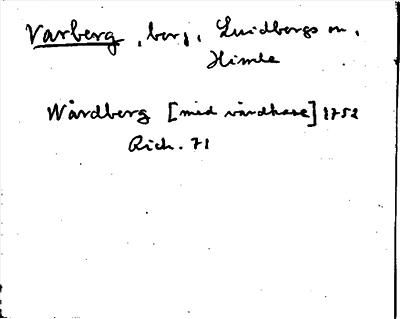 Varberg, berg, Lindbergs sn,
Himle
Wårdberg [med vårdkase] 1752
Rich. 71